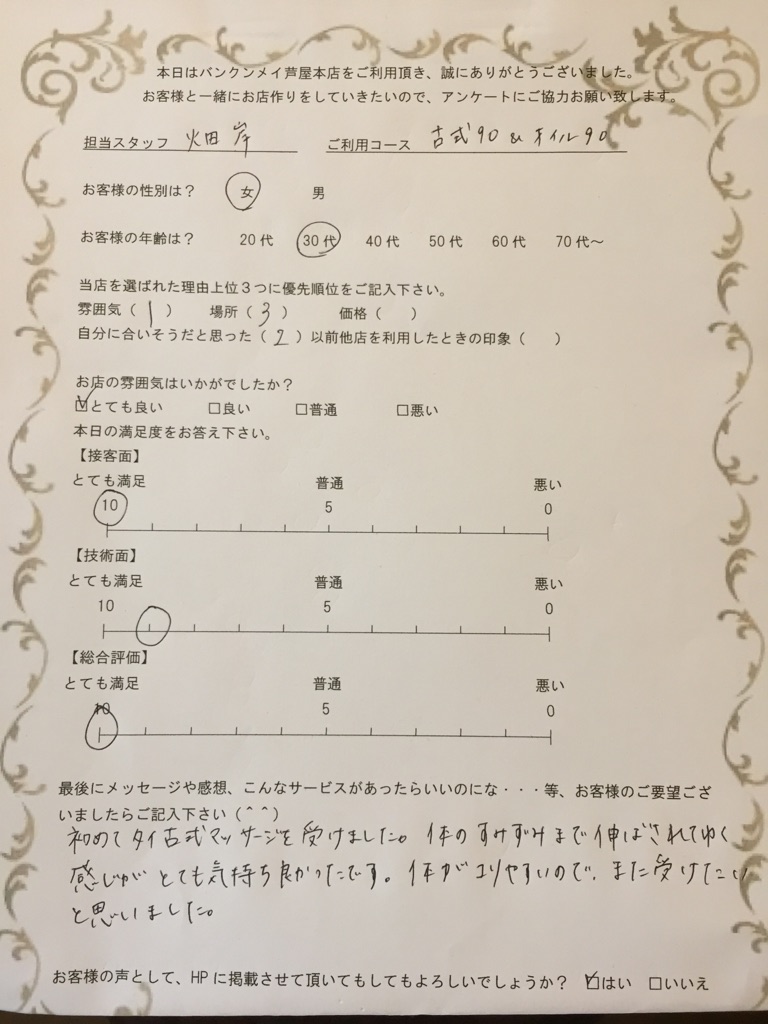 本日はバンクンメイ芦屋本店をご利用頂き、誠にありがとうございました。
お客様と一緒にお店作りをしていきたいので、アンケートにご協力お願い致します。
担当スタッフ 畑岸 ご利用コース 古式90 & オイル90
お客様の性別は？ 女 男
お客様の年齢は？ 20代 30代 40代 50代 60代 70代～
当店を選ばれた理由上位３つに優先順位をご記入下さい。
雰囲気（ 1 ） 場所（ 3 ） 価格（ ）
自分に合いそうだと思った（ 2 ）以前他店を利用したときの印象（ ）
お店の雰囲気はいかがでしたか？
☑とても良い □良い □普通 □悪い
本日の満足度をお答え下さい。
【接客面】
とても満足 普通 悪い
10 5 0
【技術面】
とても満足 普通 悪い
10 5 0
【総合評価】
とても満足 普通 悪い
10 5 0
最後にメッセージや感想、こんなサービスがあったらいいのにな・・・等、お客様のご要望ござ
いましたらご記入下さい（＾＾）
初めてタイ古式マッサージを受けました。体のすみずみまで伸ばされてゆく
感じがとても気持ち良かったです。体がコリやすいので、また受けたい
と思いました。
お客様の声として、HPに掲載させて頂いてもしてもよろしいでしょうか？ ☑はい □いいえ